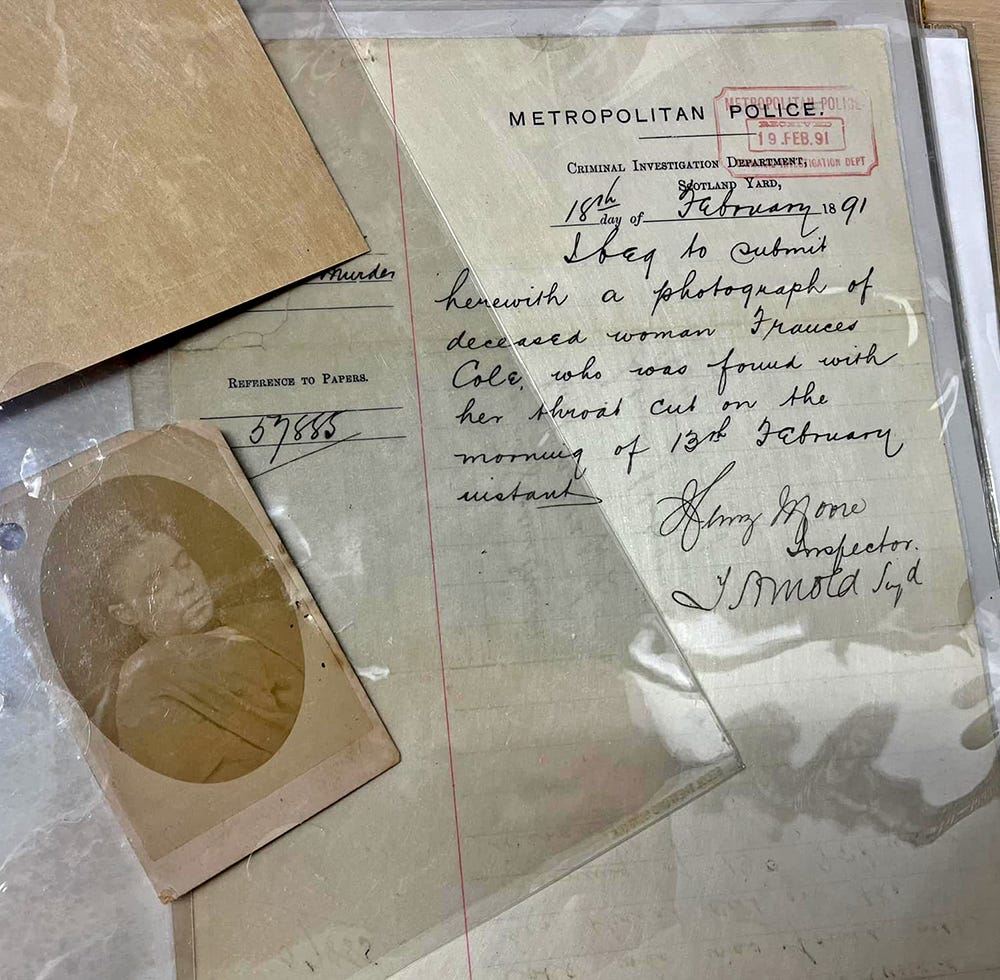 METROPOLITAN POLICE.
METROPOLITAN POLICE
RECEIVED
19.FEB.91
INVESTIGATION DEPT
CRIMINAL INVESTIGATION DEPARTMENT,
SCOTLAND YARD,
18th day of February 1891
I beg to submit
herewith a photograph of
deceased woman Frances
Cole, who was found with
her throat cut on the
morning of 13th February
instant
Henry Moore
Inspector.
T Arnold Supd
Murder
REFERENCE TO PAPERS.
57885